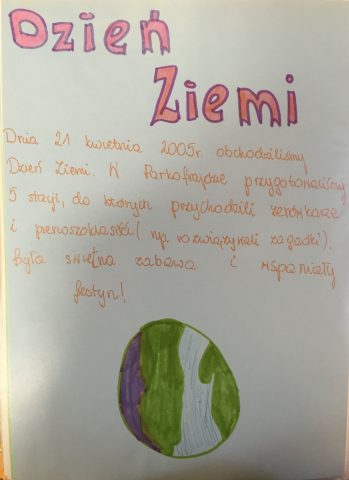 Dzień
Ziemi
Dnia 21 kwietnia 2005r. obchodziliśmy
Dzień Ziemi. W przygotowaliśmy
5 stacji, do których przychodzili zerówkarze
i pierwszoklasiści (np. rozwiązywali zagadki).
Była świetna zabawa i wspaniały
festyn!